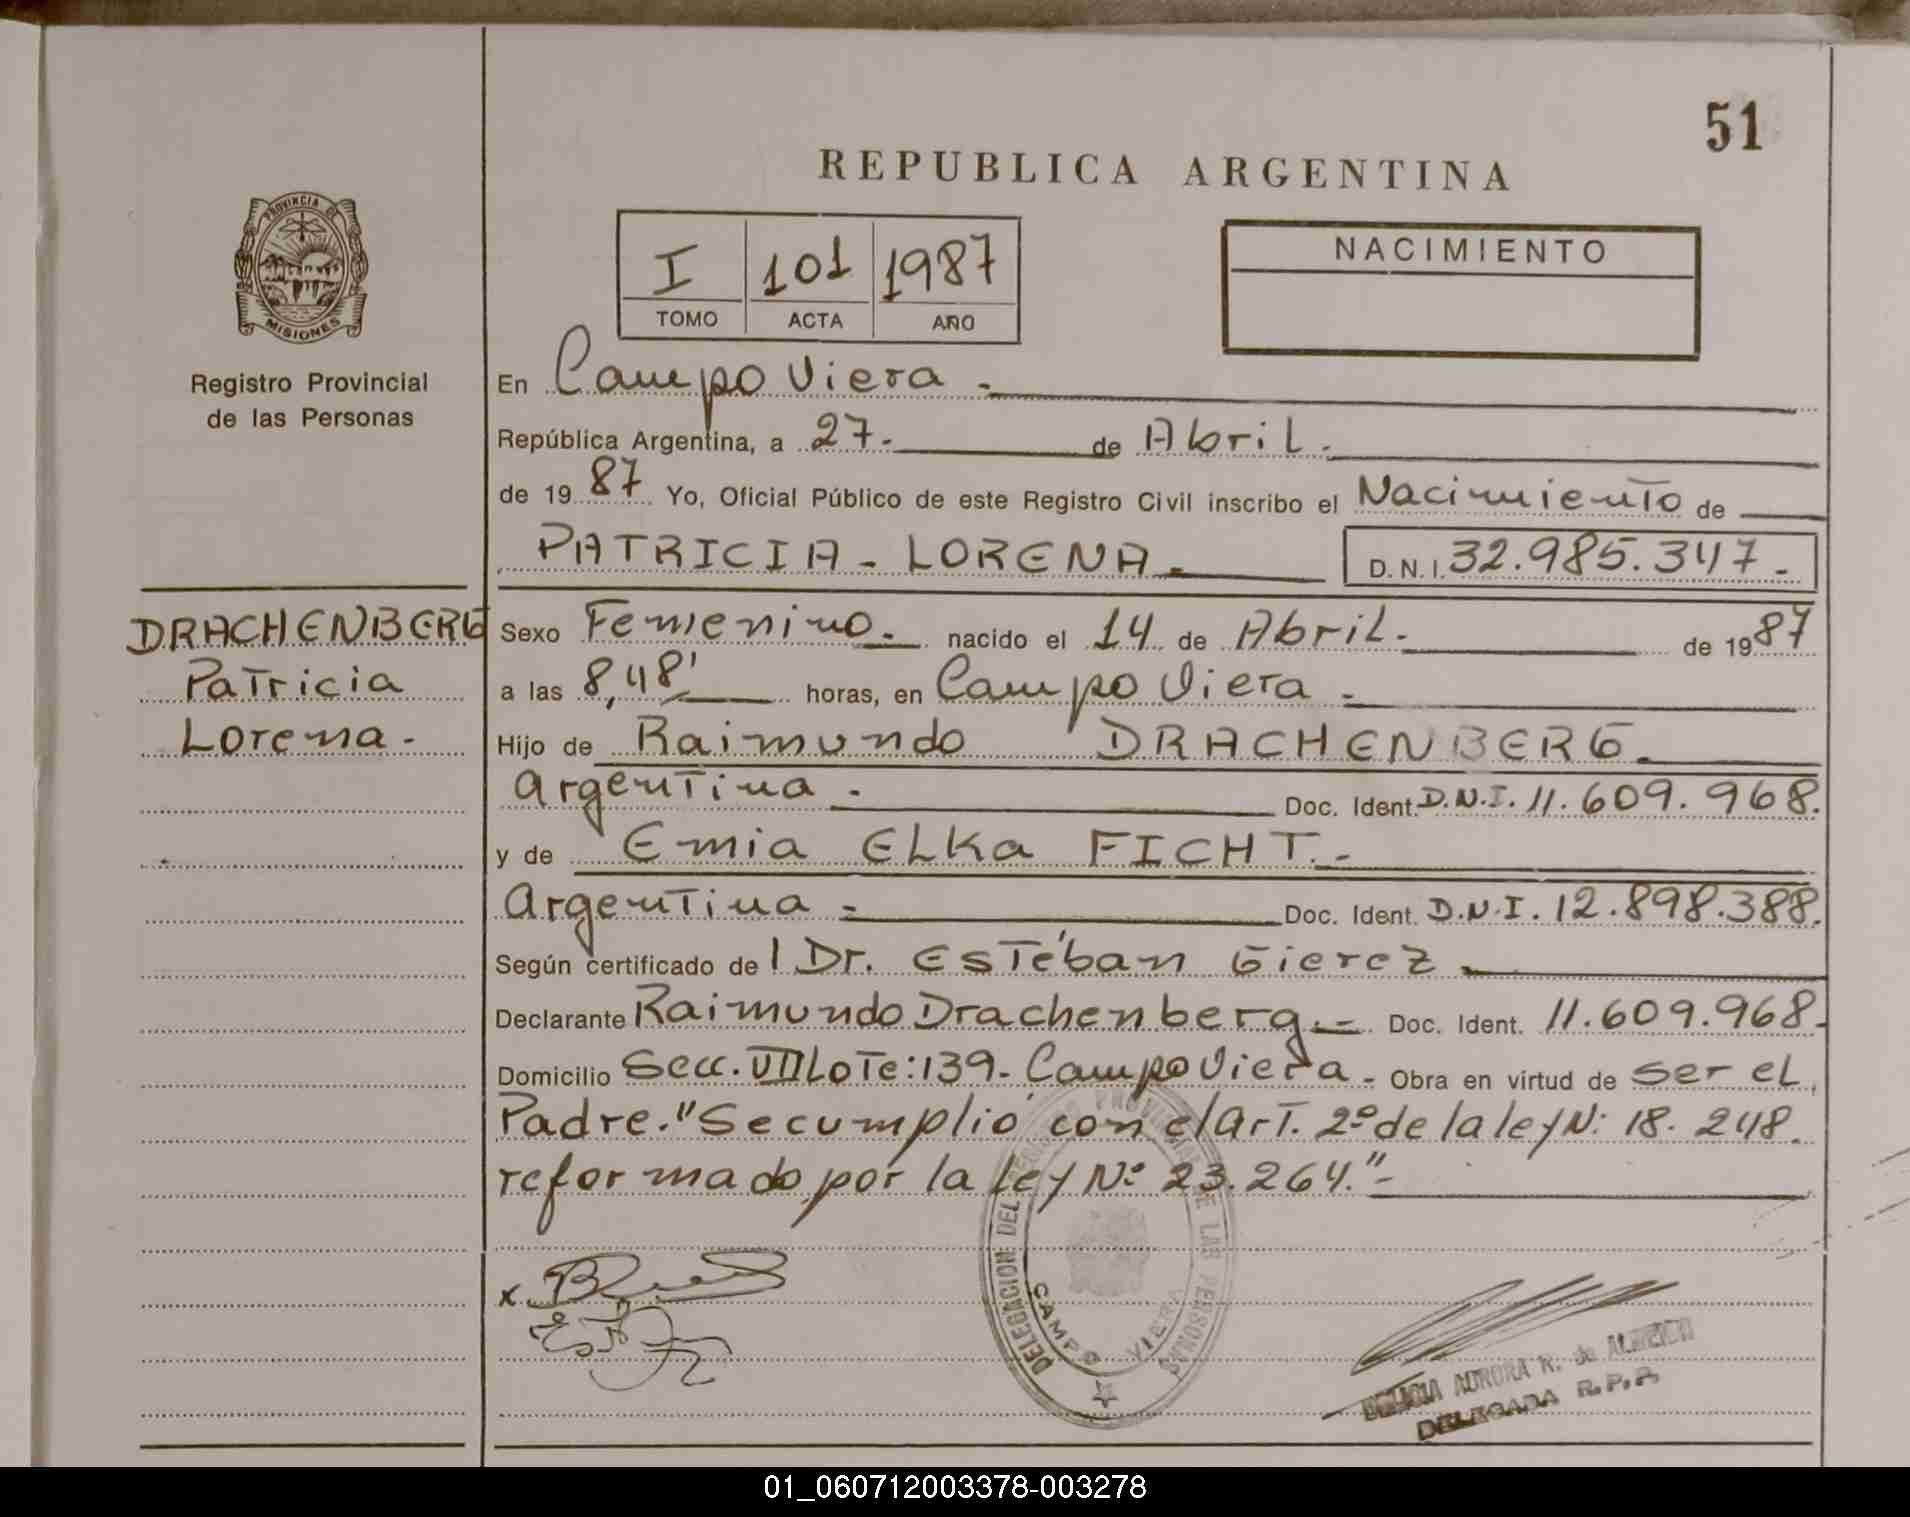 51
REPUBLICA ARGENTINA
PROVINCIA DE
MISIONES
I 101 1987
TOMO ACTA AÑO
NACIMIENTO
Registro Provincial
de las Personas
En Campo Viera.
República Argentina, a 27. de Abril.
de 19 87 Yo, Oficial Público de este Registro Civil inscribo el Nacimiento de
PATRICIA - LORENA. D.N.I. 32.985.347.-
DRACHENBERG
Patricia
Lorena.-
Sexo Femenino. nacido el 14 de Abril. de 19 87
a las 8,48' horas, en Campo Viera.
Hijo de Raimundo DRACHENBERG.
Argentina. Doc. Ident. D.N.I. 11.609.968.
y de Emia ELKa FICHT.-
Argentina - Doc. Ident. D.N.I. 12.898.388.
Según certificado de l Dr. Estéban Gierez.
Declarante Raimundo Drachenberg.- Doc. Ident. 11.609.968.
Domicilio Secc. VIII Lote: 139- Campo Viera - Obra en virtud de ser el
Padre. "Se cumplió con el art. 2º de la ley N: 18.248.
reformado por la ley Nº 23.264."-
x
DELEGACION DEL REGISTRO PROVINCIAL DE LAS PERSONAS
CAMPO VIERA
AURORA R. de ALMEIDA
DELEGADA R.P.P.
01_060712003378-003278